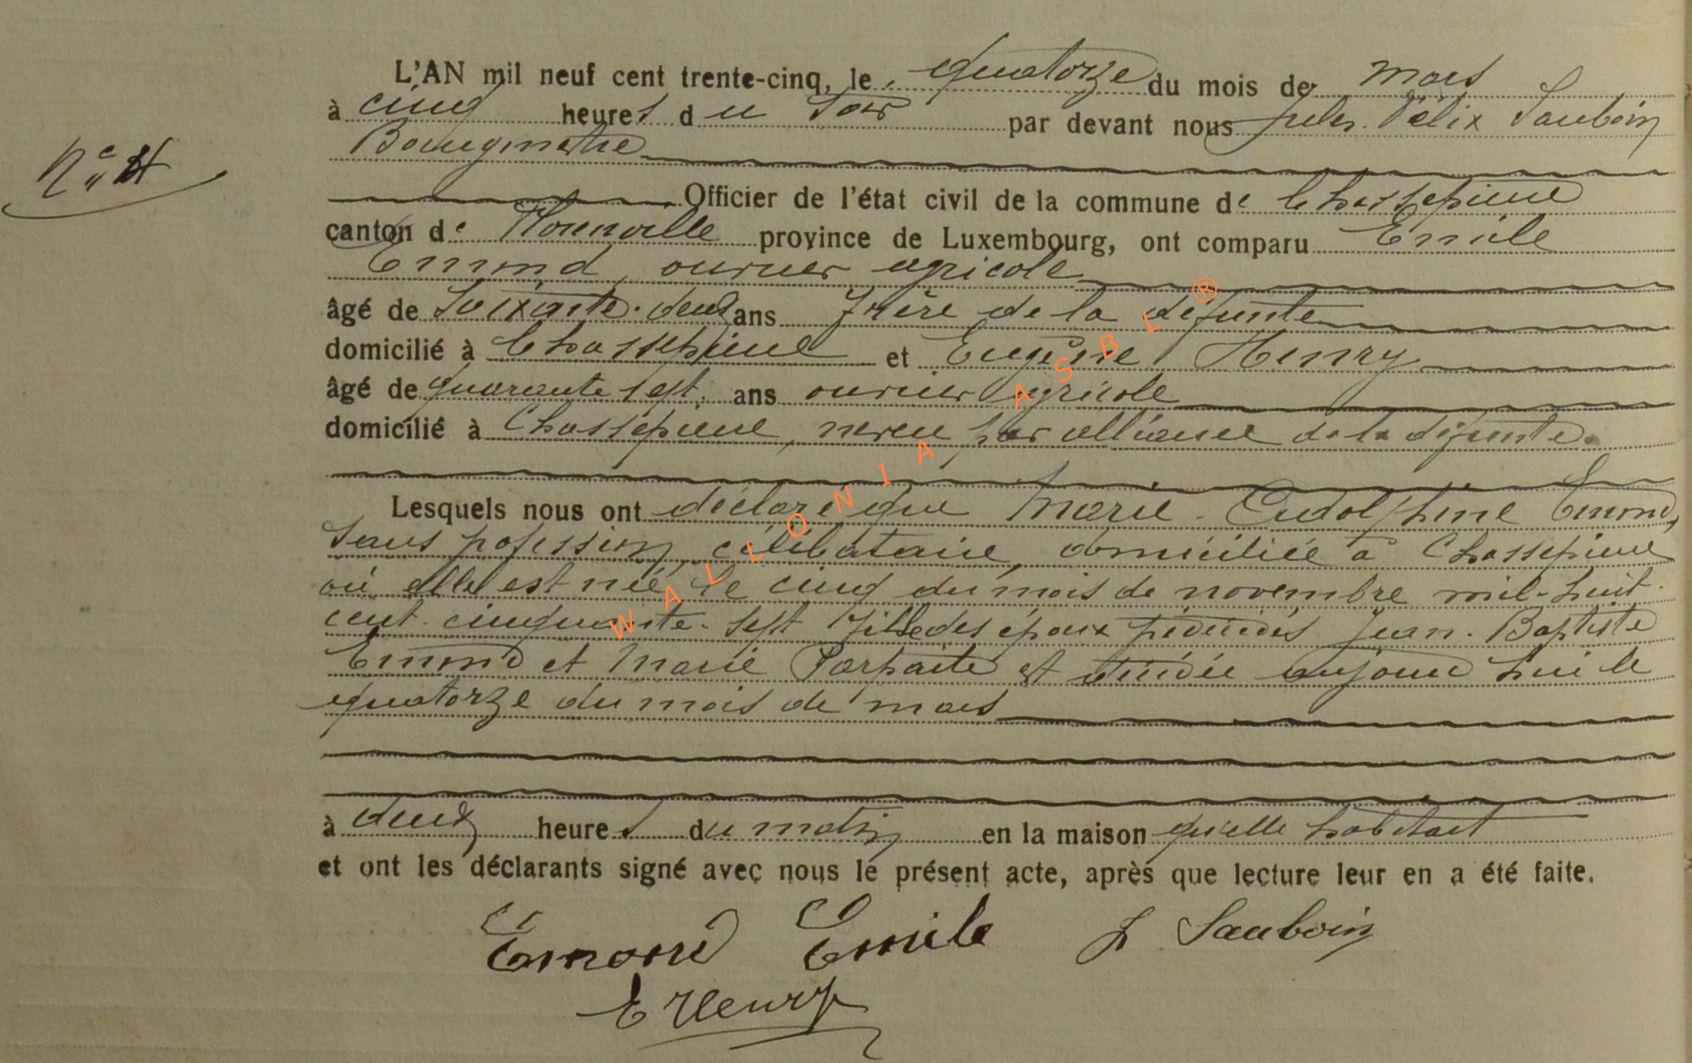 L'AN mil neuf cent trente-cinq, le quatorze du mois de mars
à cinq heures du soir par devant nous Jules Félix Sauboin
Bourgmestre
N° 4
Officier de l'état civil de la commune de Chassepierre
canton de Florenville province de Luxembourg, ont comparu Emile
Emond, ouvrier agricole
âgé de soixante-deux ans frère de la défunte
domicilié à Chassepierre et Eugène Henry
âgé de quarante sept ans ouvrier agricole
domicilié à Chassepierre, neveu par alliance de la défunte.
Lesquels nous ont déclaré que Marie-Adolphine Emond,
sans profession, célibataire, domiciliée à Chassepierre
où elle est née, le cinq du mois de novembre mil-huit-
cent-cinquante-sept fille des époux prédécédés Jean-Baptiste
Emond et Marie Parfaite est décédée aujourd'hui le
quatorze du mois de mars
à deux heures du matin en la maison qu'elle habitait
et ont les déclarants signé avec nous le présent acte, après que lecture leur en a été faite.
Emond Emile J. Sauboin
E Henry
WALLONIA ASBL ®